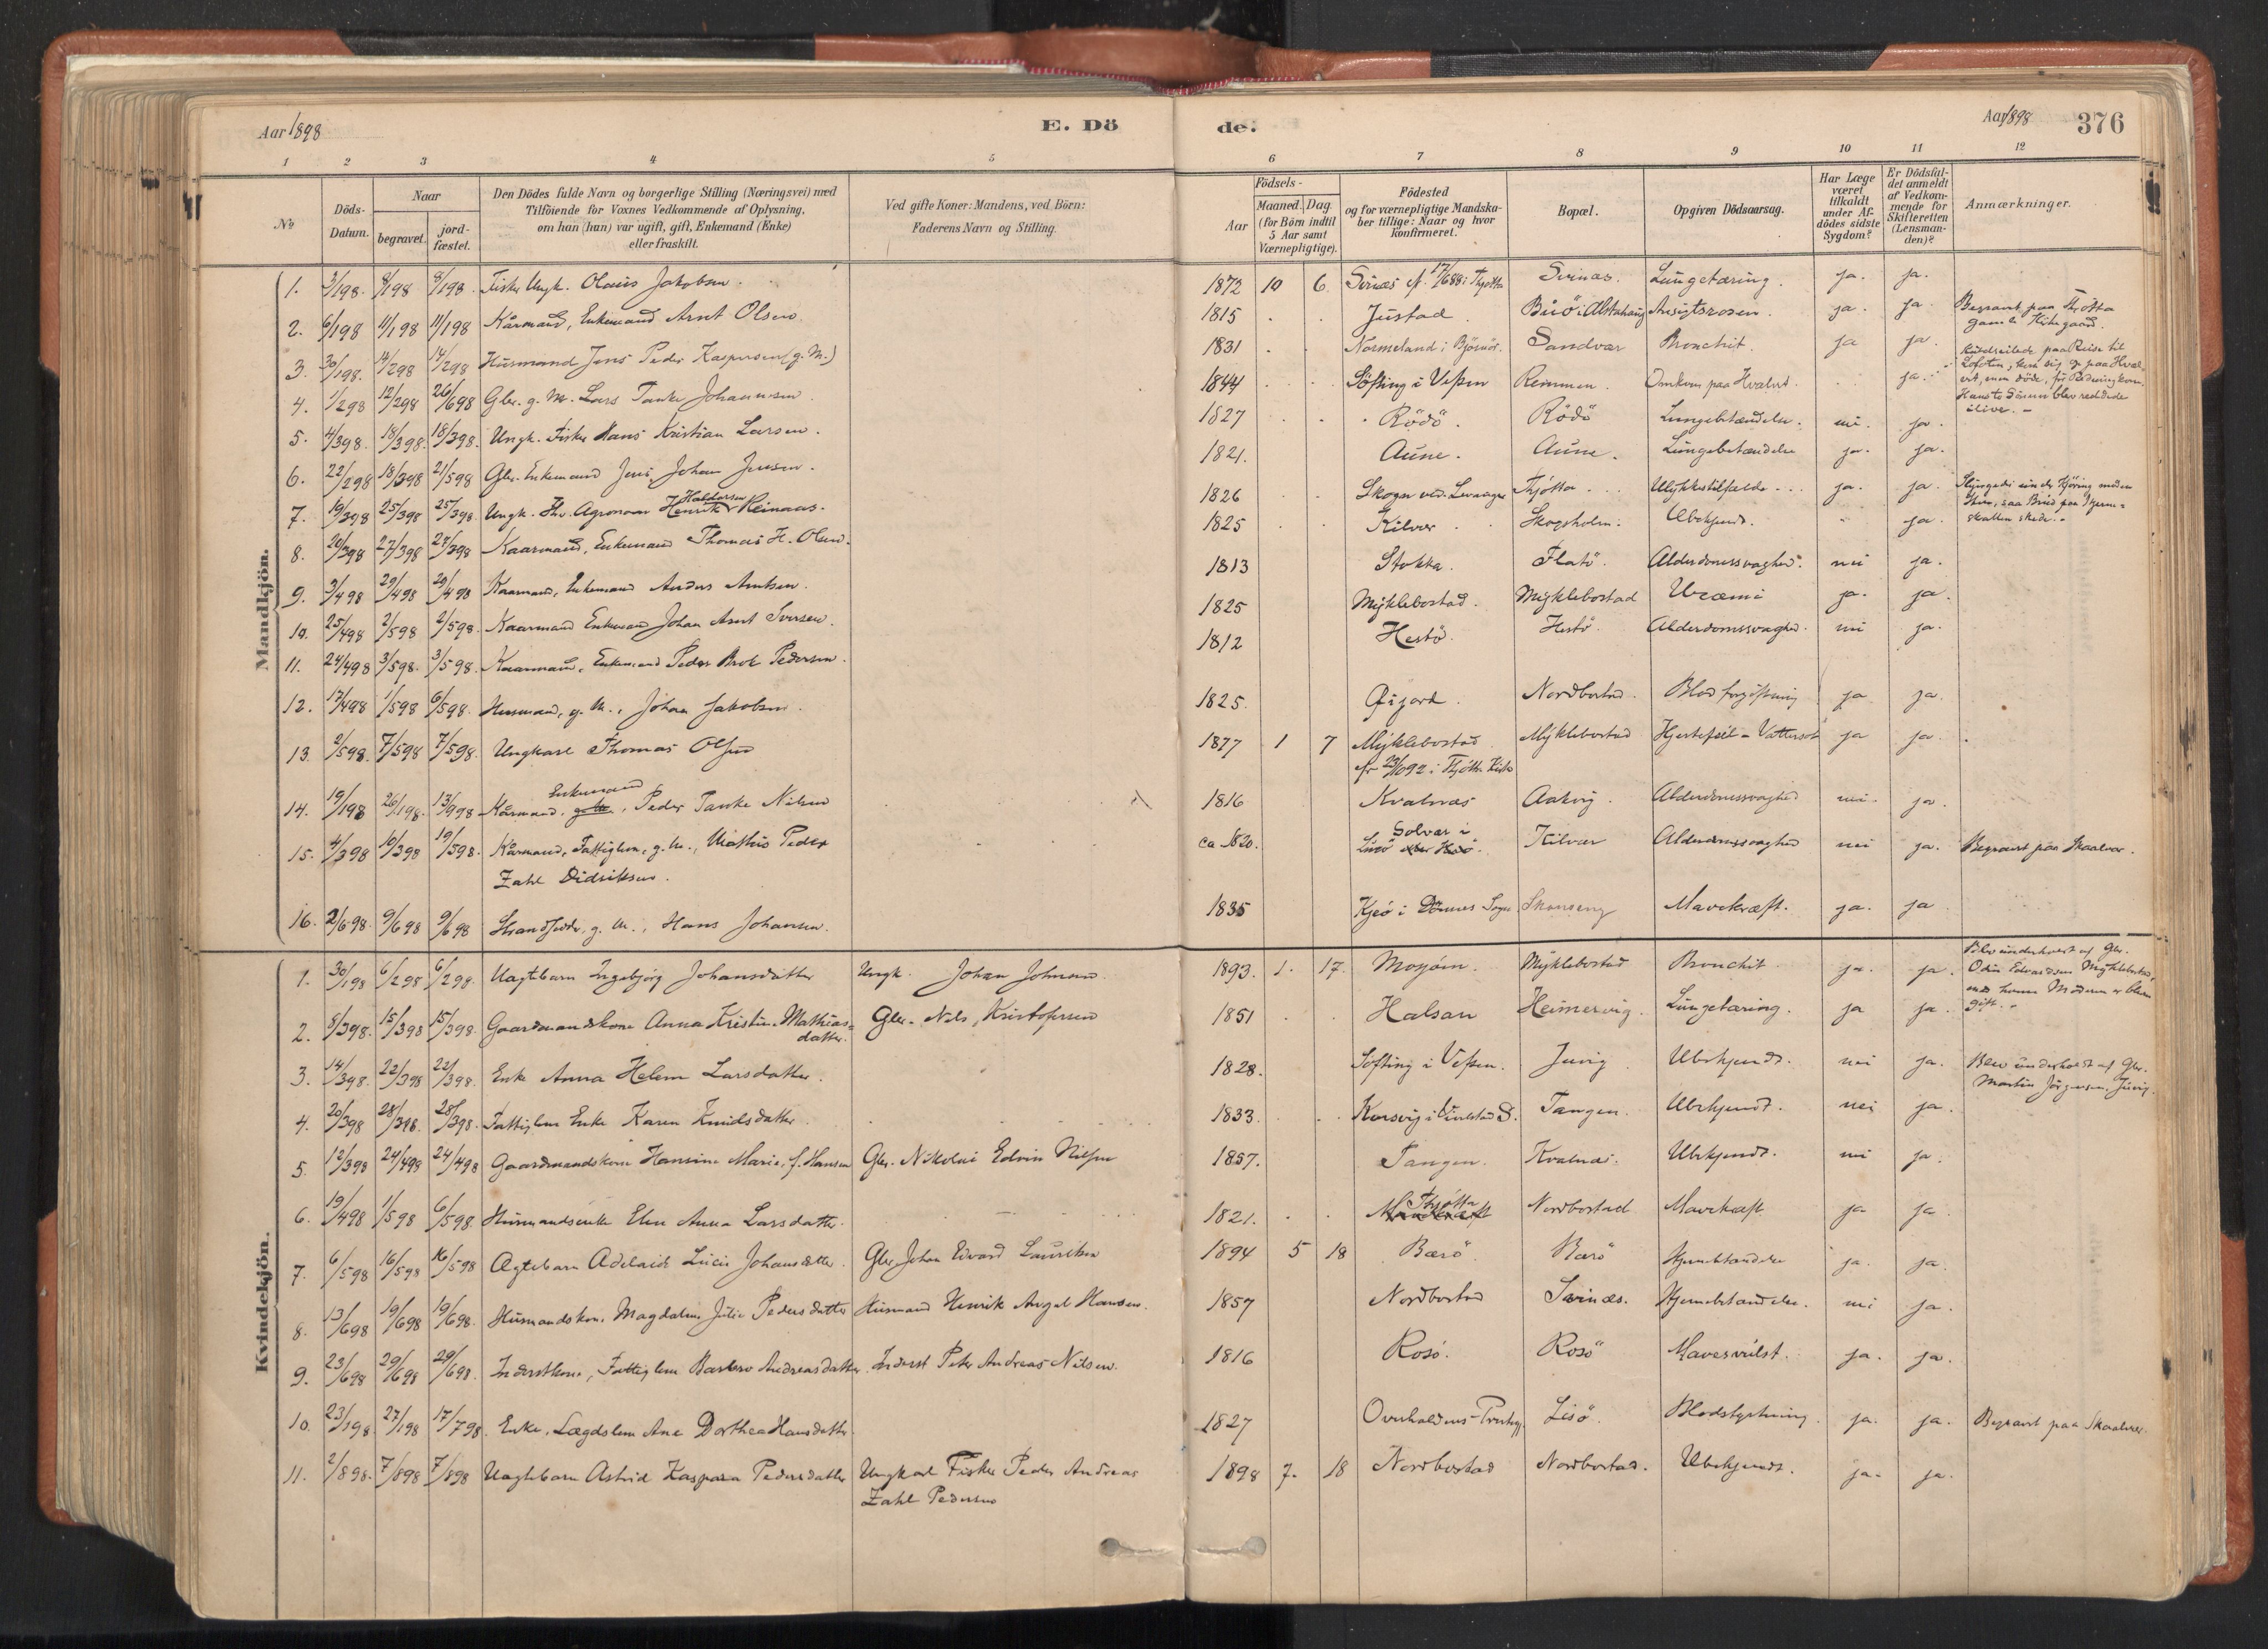 Aar 1898
E. Dö
de.
Aar 1898
376
1 2 3 4 5 6 7 8 9 10 11 12
No
Döds-Datum.
Naar
begravet.
jord-fæstet.
Den Dödes fulde Navn og borgerlige Stilling (Næringsvei) med
Tilföiende for Voxnes Vedkommende af Oplysning,
om han (hun) var ugift, gift, Enkemand (Enke)
eller fraskilt.
Ved gifte Koner: Mandens, ved Börn:
Faderens Navn og Stilling.
Födsels-
Aar
Maaned. Dag
(for Börn indtil
5 Aar samt
Værnepligtige).
Födested
og for værnepligtige Mandska-
ber tillige: Naar og hvor
konfirmeret.
Bopæl.
Opgiven Dödsaarsag.
Har Læge
været
tilkaldt
under Af-
dödes sidste
Sygdom?
Er Dödsfal-
det anmeldt
af Vedkom-
mende for
Skifteretten
(Lensman-
den)?
Anmærkninger.
Mandkjön.
1. 3/198. 8/198 8/198. Fisker Ungk. Olaus Jakobsen. 1872 10 6 Svinæs cf. 17/688 i Thjotta Svinæs. Lungetæring. ja. ja.
2. 6/198 11/198 11/198 Kårmand, Enkemand Arnt Olsen 1815 Justad. Buö i Alstahaug Ansigtsrosen. ja. ja. Begravet paa Thjøtta
gamle Kirkegaard.
3. 30/198. 14/298 14/298 Husmand Jens Peder Kaspersen (g. M.) 1831 Normeland i Bjørnör. Sandvær Bronchit. ja ja.
4. 1/298 12/298 26/698 Gbr. g. M. Lars Tanke Johannesen 1844 Söfting i Vefsen Remmen. Omkom paa Hvalvet. ja. Kuldseilede paa Reise til
Lofoten, kom sig op paa Hvæl-
vet, men döde, för Redning kom.
Hans to Sönner blev reddede
ilive. -
5. 4/398. 18/398. 18/398. Ungk. Fisker Hans Kristian Larsen. 1827 Rödö. Rödö Lungebetændelse. nei. ja.
6. 22/298 18/398 21/598 Gbr. Enkemand Jens Johan Jensen. 1821. Aune. Aune. Lungebetændelse ja. ja.
7. 19/398 25/398 25/398. Ungk. Agronom Henrik Haldorsen Heinaas. 1826 Skogn ved Levanger Thjøtta Ulykkestilfælde ja. ja.
8. 20/398 27/398 27/398 Kaarmand, Enkemand Thomas H. Olsen. 1825 Kilvær Skogsholm. Ubekjendt. ja.
9. 3/498 29/498 29/498 Kaarmand, Enkemand Anders Arntsen. 1813 Stokka. Flatö. Alderdomssvaghed. nei ja.
10. 25/498 2/598 2/598. Kaarmand Enkemand Johan Arnt Iversen. 1825 Myklebostad. Myklebostad Uræmi ja. ja.
11. 24/498 3/598. 3/598. Kaarmand, Enkemand Peder Brok Pedersen. 1812 Hestö. Hestö. Alderdomssvaghed. nei ja.
12. 17/498 1/598 6/598. Husmand, g. M., Johan Jakobsen. 1825. Øigard. Nordbostad. Blodforgiftning ja ja.
13. 2/598. 7/598 7/598. Ungkarl Thomas Olsen 1877 1 7 Myklebostad Myklebostad Hjertefeil - Vattersot ja ja.
cfr 23/1092 i Thjøtta Kirke
14. 19/198 26/198. 13/998 Kårmand, Enkemand, Peder Tanke Nilsen 1816 Kvalnæs Aakvig. Alderdomssvaghed nei. ja.
15. 4/398 10/398 19/598. Kårmand, Fattiglem, g. M., Mathias Peder ca 1820. Solvær i Kilvær Alderdomssvaghed nei ja. Begravet paa Skaalvær.
Zahl Didriksen.
16. 2/698. 9/698 9/698 Strandsidder, g. M., Hans Johansen. 1835 Kjeö i Dönnes Sogn Skonseng Mavekræft. ja. ja
Kvindekjön.
1. 30/198 6/298 6/298. Uægtebarn Ingebjørg Johansdatter Ungk. Johan Johnsen 1893. 1. 17. Mosjøen. Myklebostad Bronchit ja. ja. Blev underholdt af Gbr.
Odin Edvardsen Myklebostad,
med hvem Moderen er bleven
gift. -
2. 8/398. 15/398 15/398. Gaardmandskone Anna Kristine Mathias=
datter. Gbr. Nils Kristofersen 1851 Halsan Heimervig. Lungetæring. ja ja.
3. 14/398. 22/398 22/398. Enke Anna Helena Larsdatter. 1828. Söfting i Vefsen. Juvig Ubekjendt. nei ja. Blev underholdt af Gbr.
Martin Jørgensen Juvig.
4. 20/398 28/398. 28/398. Fattiglem Enke Karen Knudsdatter 1833. Tangen. Ubekjendt. nei ja.
5. 12/398 24/498 24/498 Gaardmandskone Hansine Marie, f. Hansen Gbr. Nikolai Edvin Nilsen 1857. Tangen. Kvalnæs. Ubekjendt. nei ja.
6. 19/498 1/598 6/598. Husmandsenke Elen Anna Larsdatter. 1821. Thjøtta Nordbostad Mavekræft ja ja
7. 6/598 16/598 16/598 Ægtebarn Adelaide Lucie Johansdatter. Gbr. Johan Edvard Lauritsen 1894 5 18 Bærö. Bærö Hjernebetændelse ja. ja.
8. 13/698 19/698 19/698. Husmandskone Magdalena Julie Pedersdatter Husmand Henrik Angel Hansen. 1857 Nordbostad Svinæs. Hjernebetændelse. nei ja.
9. 23/698 29/698 29/698. Inderstkone, Fattiglem Barbro Andreasdatter. Inderst Peter Andreas Nilsen. 1816 Rosö. Rosö Mavesvulst. ja. ja.
10. 23/198 27/198 17/798. Enke, Lægdslem Ane Dorthea Hansdatter 1827 Lisö. Blodstyrtning. ja. ja. Begravet paa Skaalvær.
11. 2/898. 7/898 7/898 Uægtebarn Astrid Kaspara Pedersdatter Ungkarl Fisker Peder Andreas
Zahl Pedersen 1898 7. 18 Nordbostad Nordbostad. Ubekjendt. ja. ja.